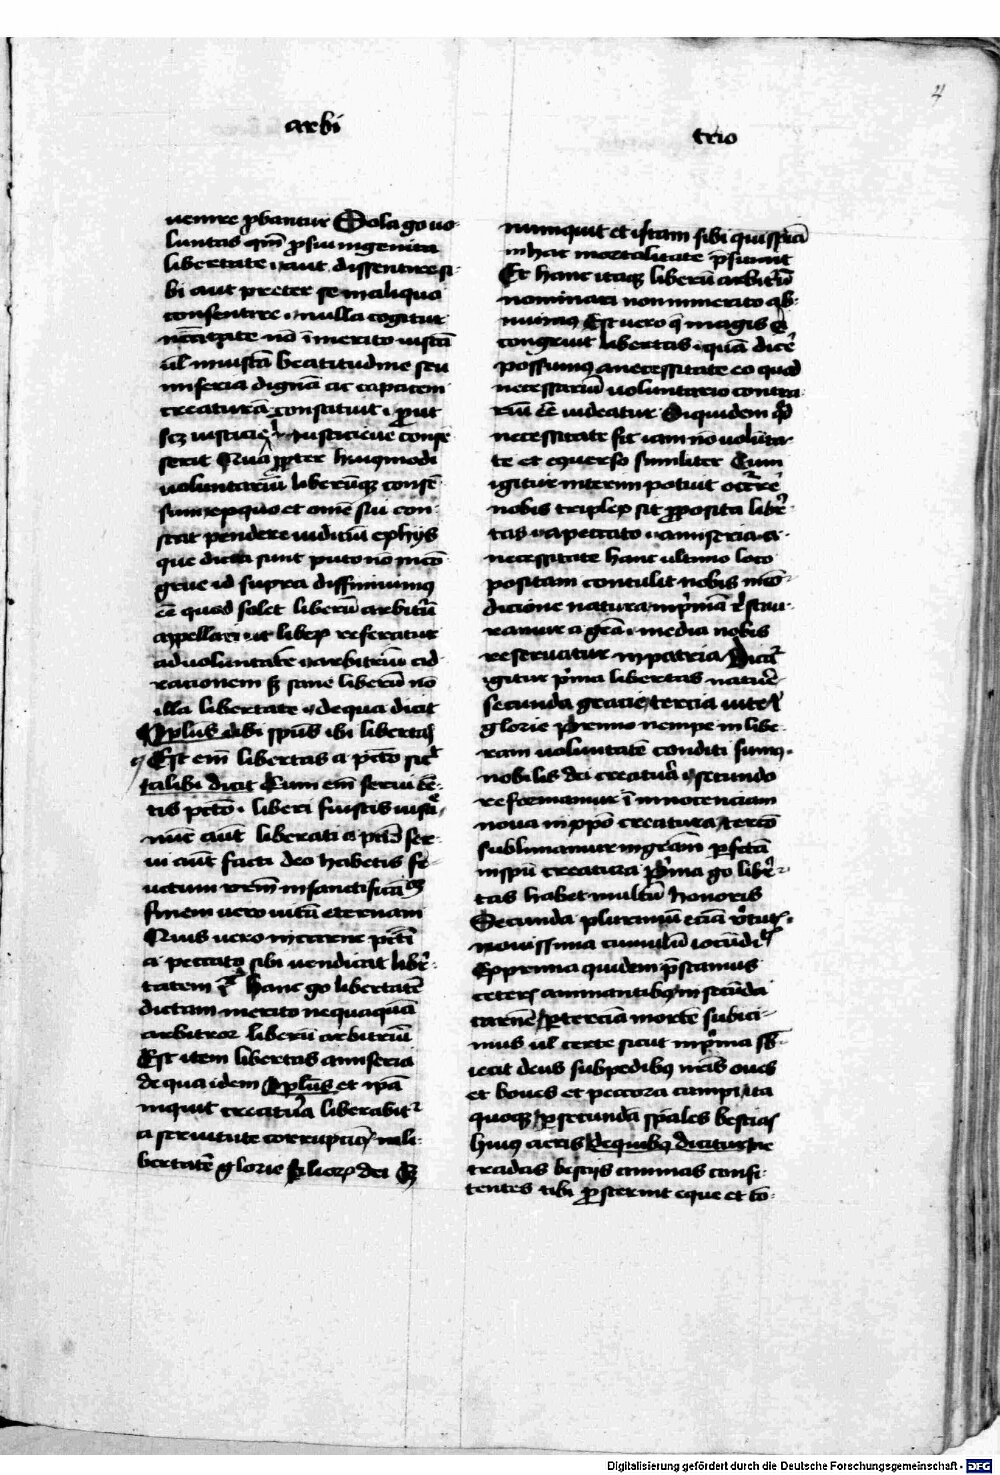 4
arbi
trio
uenire ꝓbantur Sola gͦ uo-
luntas qm̄ ꝓ sui ingenita
libertate · aut dissentire si-
bi aut preter se in aliquo
consentire · nulla cogitur
necc̄itate nō īmerito iustā
ul̄ iniustā beatitudine seu
miseria dignā ac capacem
creaturā constituit · ꝓut
scꝫ iusticie iniusticieue consē
serit Qua ꝓpter huiꝰmodi
uoluntariū liberūqꝫ consē-
sum ex quo et omē sui con-
stat pendere iudiciū ex hijs
que dicta sunt puto nō incō
grue id supra diffiniuimꝰ
eē quod solet liberū arbitriū
appellari · ut liberꝭ referatur
ad uoluntatē · arbitriū ad
rationem sꝫ sane liberū nō
illa libertate · de qua dicit
Apl̄us ubi spūs ibi libertas
Est em̄ libertas a pctō sic̄
talibi dicit Cum em̄ serui eē-
tis pctō · liberi fuistis iusticie
nūc aūt liberati a pctō ser-
ui aūt facti deo habetis fr-
uctum urm̄ in sanctificacōꝫ
finem uero uitā eternam
Quis uero in carne pctī
a peccato sibi uendicat liber-
tatem Hanc gͦ libertatē
dictam merito nequaquā
arbitror liberū arbitriū
Est item libertas a miseria
de qua idem Apl̄us et ipā
inquit creatura liberabitꝛ
a seruitute corrupcōis in li-
bertatē glorie filiorꝭ dei Sꝫ
numquit et istam sibi quispiā
in hac mortalitate p̄sumit
Et hanc itaqꝫ liberū arbitriū
nominari non inmerito ab-
nuimꝰ Est uero q̄ magis ei
congruit libertas · quā dicē
possumꝰ a necessitate eo quod
necessariū uoluntario contra-
riū eē uideatur Siquidem qd̄
necessitate fit iam nō uolūta-
te et eꝯuerso similiter Cum
igitur interim potuit occr̄re
nobis triplex sit ꝓposita liber-
tas · a peccato · a miseria · a
necessitate hanc ultimo loco
positam contulit nobis incō-
dicione natura in p̄mā restau-
ramur a grā · media nobis
reseruatur in patria Dicat̄
igitur p̄ma libertas nature
secunda gracie tercia uite ul̄
glorie Primo nempe in libe-
ram uoluntatē conditi sumꝰ
nobilis dei creatura · secundo
reformamur ī innocenciam
noua in xp̄o creatura tercō
sublimamur in gl̄am ꝑfecta
in spū creatura Prima gͦ liber-
tas habet multū honoris
Secunda plurimū eciā uirtutis
nouissima cumulū iocūdit̄
Ex prima quidem p̄stamus
ceterꝭ animantibꝰ in secūda
carnē ꝑ terciā mortē subici-
mus ul̄ certe sicut in p̄ma sb̄-
iecit deus sub pedibꝰ nris̄ oues
et boues et peccora campi ita
quoqꝫ ꝑ secundā spales̄ bestias
huiꝰ aeris de quibꝰ dicitur ne
tradas bestijs animas confi-
tentes tibi ꝓsternit eque et cō-
Digitalisierung gefördert durch die Deutsche Forschungsgemeinschaft - DFG